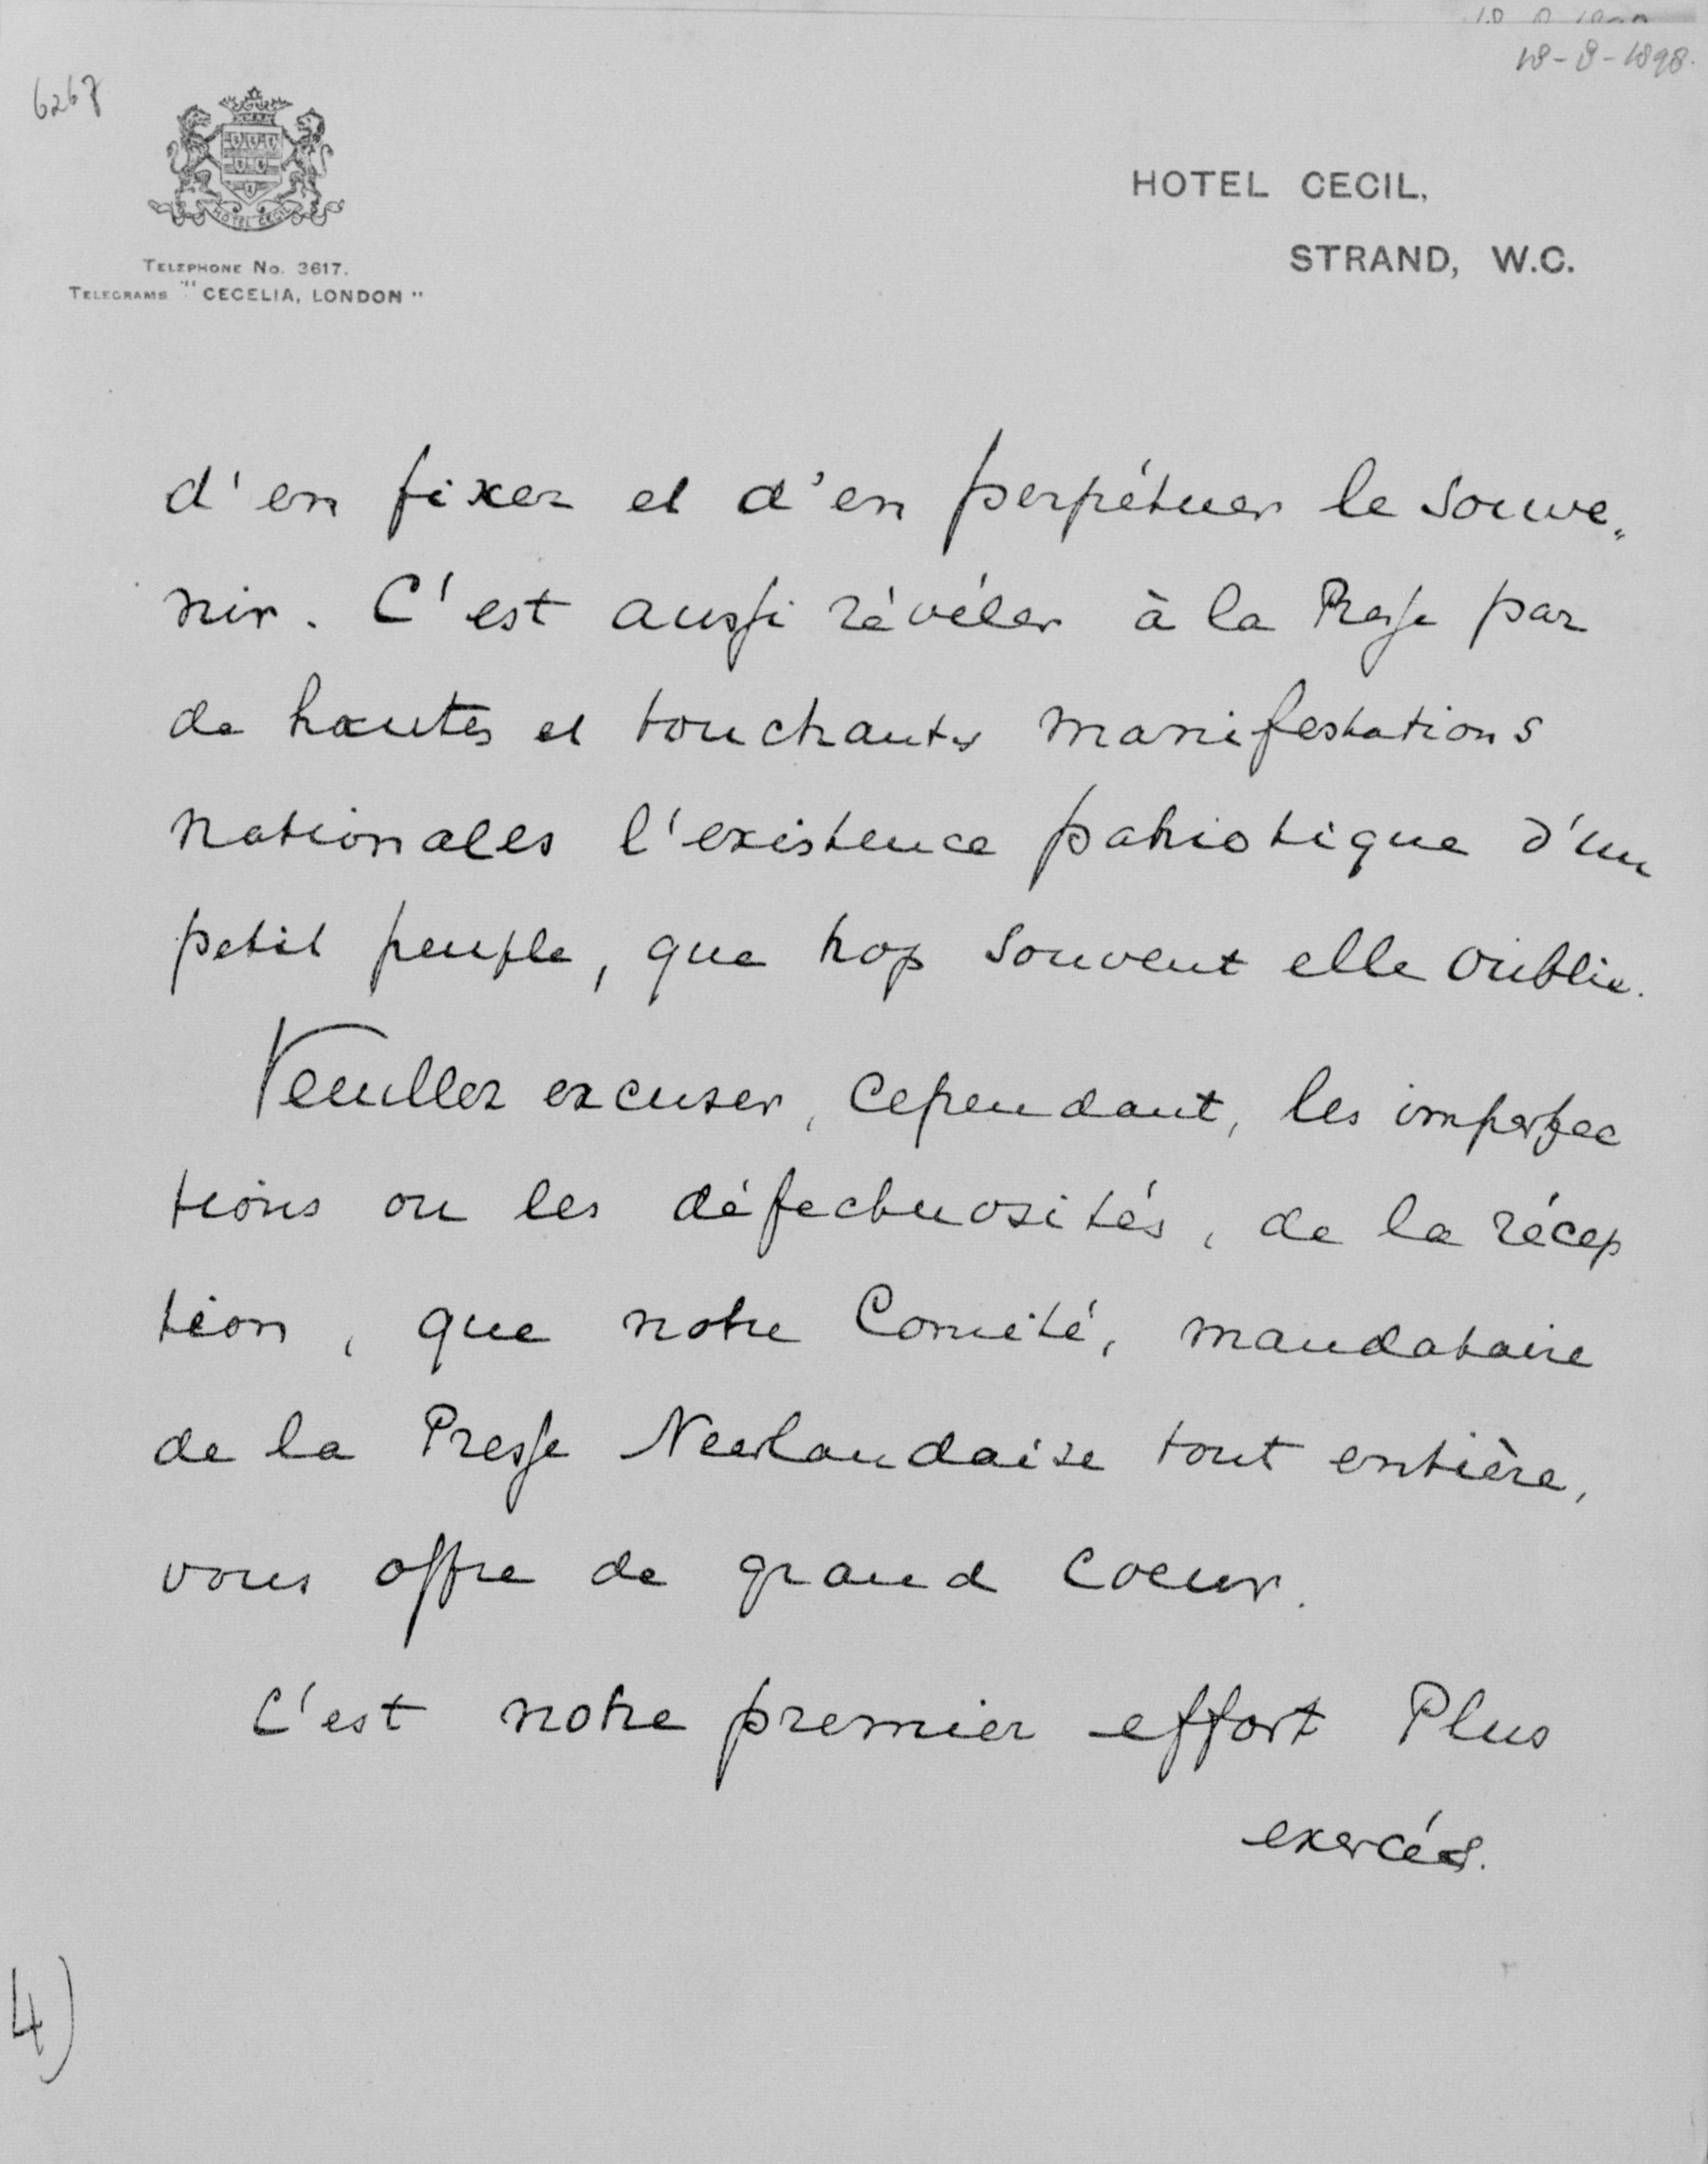 18-8-1898.
6267
HOTEL CECIL
TELEPHONE No. 3617.
TELEGRAMS "CECELIA, LONDON"
HOTEL CECIL,
STRAND, W.C.
d'en fixer et d'en perpétuer le souve„
nir. C'est aussi révéler à la Presse par
de hautes et touchantes manifestations
nationales l'existence patriotique d'un
petit peuple, que trop souvent elle oublie.
Veuillez excuser, cependant, les imperfec
tions ou les défectuosités, de la récep
tion, que notre Comité, mandataire
de la Presse Neerlandaise tout entière,
vous offre de grand coeur.
C'est notre premier effort Plus
exercés.
4)